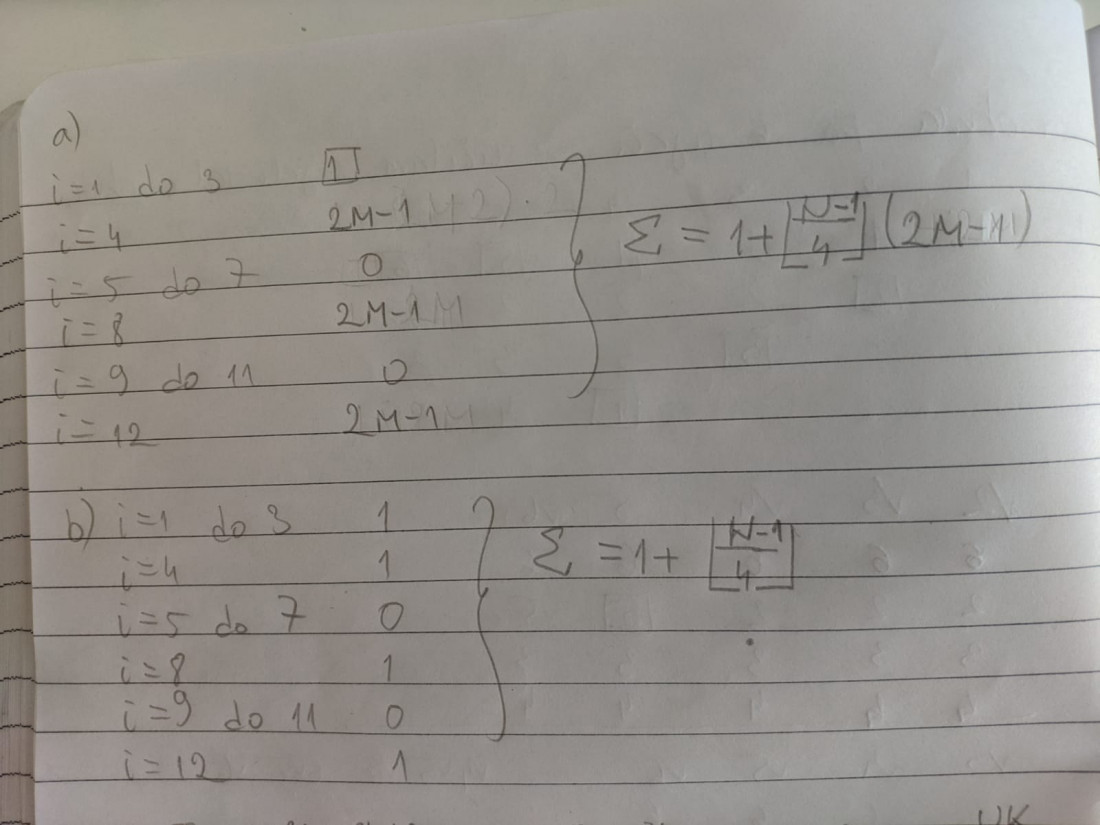 a)
i=1 do 3 1
i=4 2M-1
i=5 do 7 0
i=8 2M-1
i=9 do 11 0
i=12 2M-1
Σ = 1+⌊(N-1)/4⌋(2M-1)
b) i=1 do 3 1
i=4 1
i=5 do 7 0
i=8 1
i=9 do 11 0
i=12 1
Σ = 1+ ⌊(N-1)/4⌋